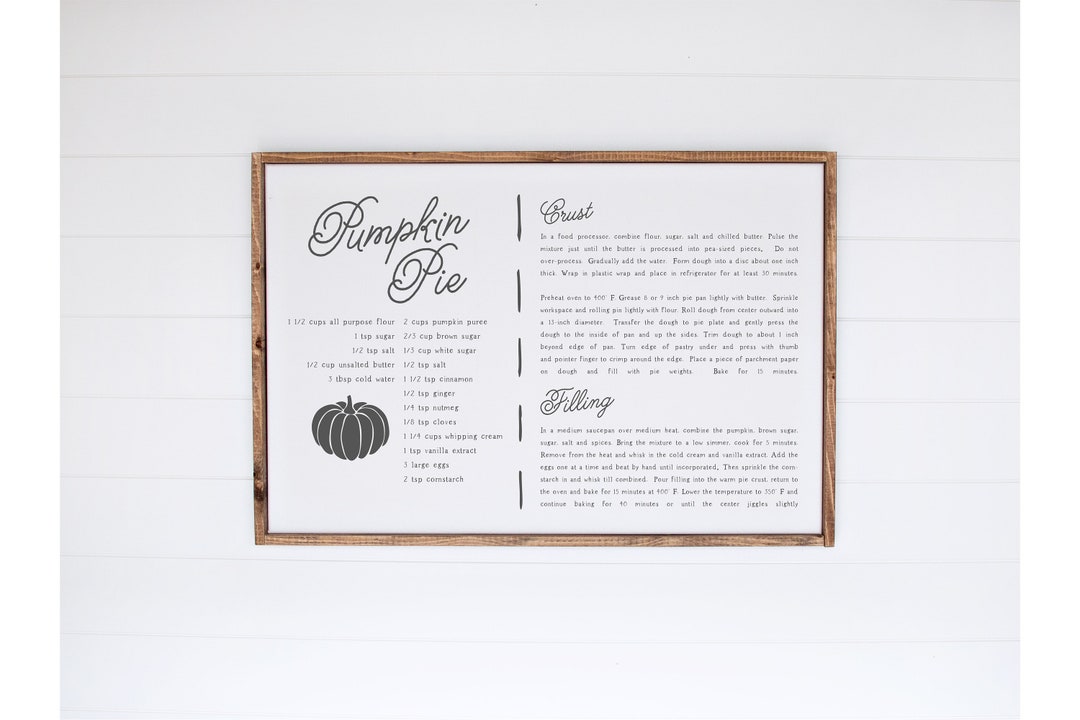 Pumpkin
Pie
1 1/2 cups all purpose flour
1 tsp sugar
1/2 tsp salt
1/2 cup unsalted butter
3 tbsp cold water
2 cups pumpkin puree
2/3 cup brown sugar
1/3 cup white sugar
1/2 tsp salt
1 1/2 tsp cinnamon
1/2 tsp ginger
1/4 tsp nutmeg
1/8 tsp cloves
1 1/4 cups whipping cream
1 tsp vanilla extract
3 large eggs
2 tsp cornstarch
Crust
In a food processor, combine flour, sugar, salt and chilled butter. Pulse the
mixture just until the butter is processed into pea-sized pieces. Do not
over-process. Gradually add the water. Form dough into a disc about one inch
thick. Wrap in plastic wrap and place in refrigerator for at least 30 minutes.
Preheat oven to 400° F. Grease 8 or 9 inch pie pan lightly with butter. Sprinkle
workspace and rolling pin lightly with flour. Roll dough from center outward into
a 13-inch diameter. Transfer the dough to pie plate and gently press the
dough to the inside of pan and up the sides. Trim dough to about 1 inch
beyond edge of pan. Turn edge of pastry under and press with thumb
and pointer finger to crimp around the edge. Place a piece of parchment paper
on dough and fill with pie weights. Bake for 15 minutes.
Filling
In a medium saucepas over medium heat, combine the pumpkin, brown sugar,
sugar, salt and spices. Bring the mixture to a low simmer, cook for 5 minutes.
Remove from the heat and whisk in the cold cream and vanilla extract. Add the
eggs one at a time and beat by hand until incorporated, Then sprinkle the corn-
starch in and whisk till combined. Pour filling into the warm pie crust, return to
the oven and bake for 15 minutes at 400° F. Lower the temperature to 350° F and
continue baking for 40 minutes or until the center jiggles slightly